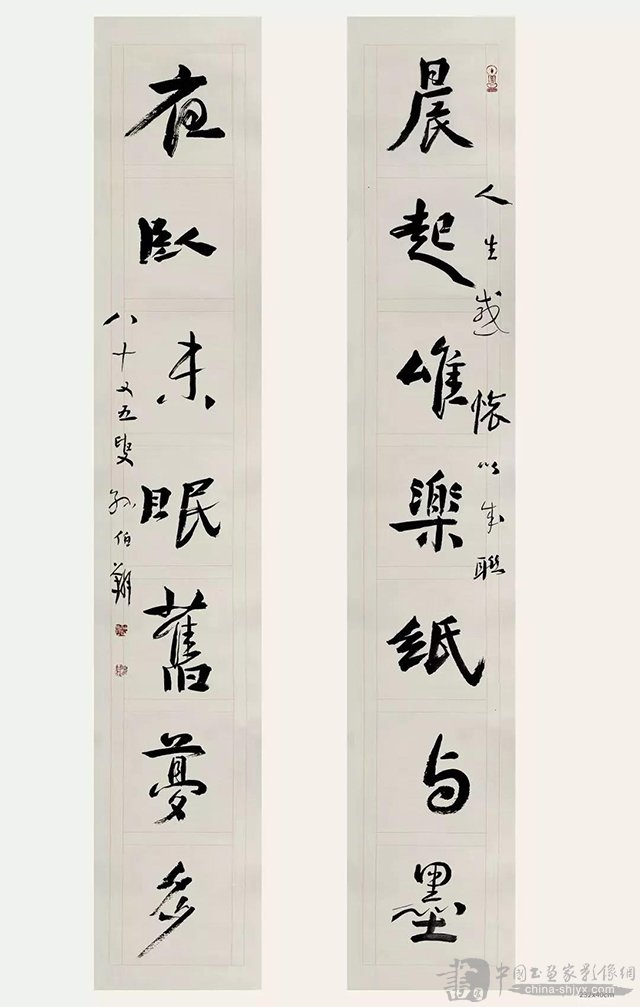 晨起唯樂紙与墨
人生感懷以成聯
夜臥未眠舊夢多
八十又五叟孫伯翔
書
中國书画家影像網
china-shjyx.com
232x40cm